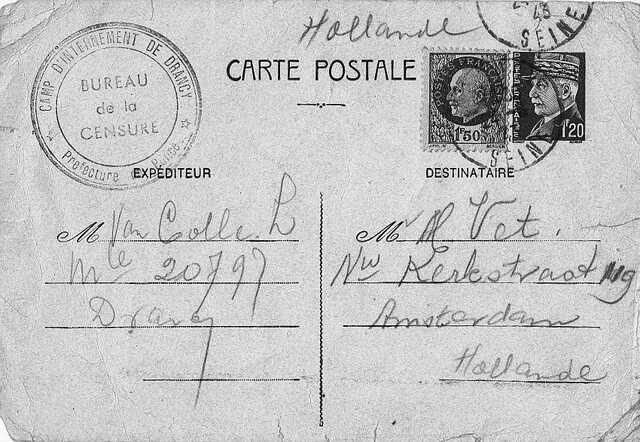 Hollande
CAMP D'INTERNEMENT DE DRANCY
BUREAU
de la
CENSURE
Préfecture de Police
CARTE POSTALE
POSTES FRANÇAISES
1F50
1F20
43
SEINE
SEINE
EXPÉDITEUR
M Van Colle. L
Mle 20797
Drancy
DESTINATAIRE
M r Vet.
Nw Kerkstraat 119
Amsterdam
Hollande